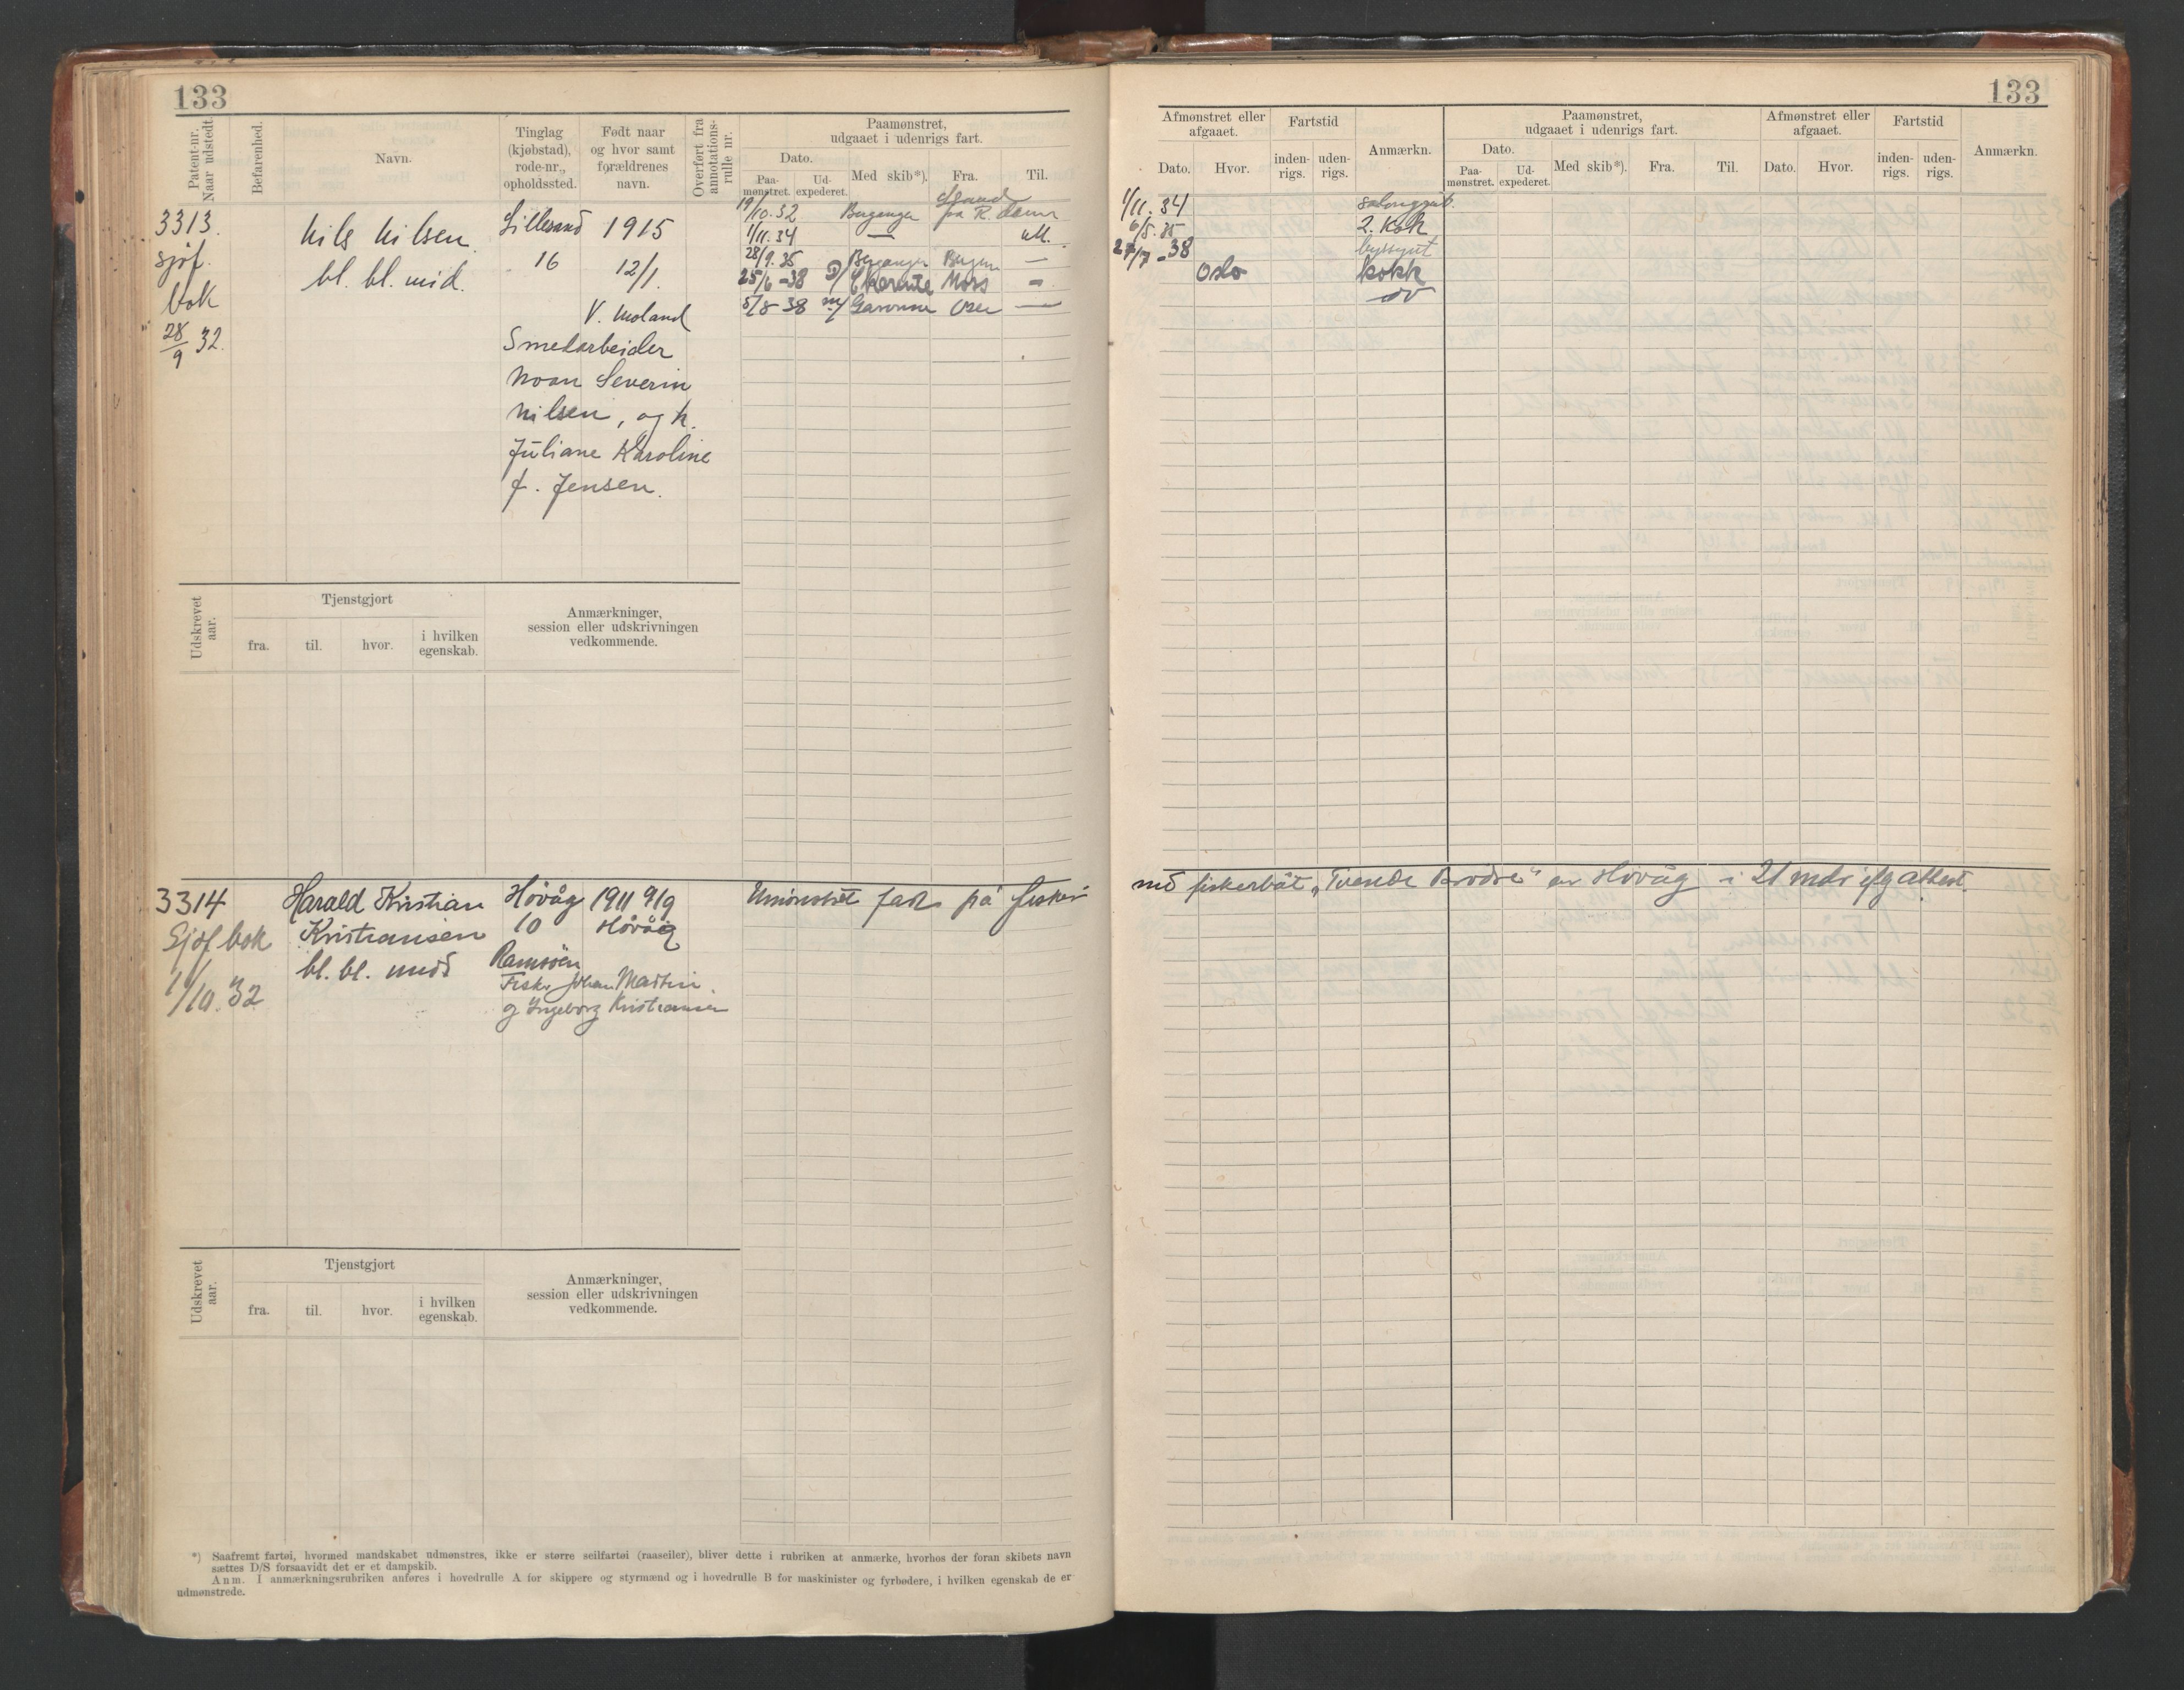 133
Patent-nr. Naar udstedt.
Befarenhed.
Navn.
Tinglag (kjøbstad), rode-nr., opholdssted.
Født naar og hvor samt forældrenes navn.
Overført fra annotations-rulle nr.
Paamønstret, udgaaet i udenrigs fart.
Dato.
Paa-mønstret.
Ud-expederet.
Med skib*).
Fra.
Til.
3313.
sjøf.
bok
28/9 32.
Nils Nilsen.
bl. bl. mid.
Lillesand 1915
16 12/1.
V. Moland
Smedarbeider
Noan Severin
Nilsen, og h.
Juliane Karoline
f. Jensen.
19/10.32 Beranger fra R.damm
1/11.34 — utl.
28/9.35 Beranger Bergen —
25/6-38 D/ Moss -
5/8-38 m/ Garonne Oslo —
Udskrevet aar.
Tjenstgjort
fra. til. hvor. i hvilken egenskab.
Anmærkninger, session eller udskrivningen vedkommende.
3314
Sjøf bok
1/10.32
Harald Kristian
Kristiansen
bl. bl. mid
Høvåg 1911 9/9
10 Høvåg
Ramsøen
Fisker Johan Martin
og Ingeborg Kristiansen
Udskrevet aar.
Tjenstgjort
fra. til. hvor. i hvilken egenskab.
Anmærkninger, session eller udskrivningen vedkommende.
*) Saafremt fartøi, hvormed mandskabet udmønstres, ikke er større seilfartøi (raaseiler), bliver dette i rubriken at anmærke, hvorhos der foran skibets navn
sættes D/S forsaavidt det er et dampskib.
Anm. I anmærkningsrubriken anføres i hovedrulle A for skippere og styrmænd og i hovedrulle B for maskinister og fyrbødere, i hvilken egenskab de er
udmønstrede.
133
Afmønstret eller afgaaet.
Dato. Hvor.
Fartstid
inden-rigs. uden-rigs.
Anmærkn.
Paamønstret, udgaaet i udenrigs fart.
Dato.
Paa-mønstret. Ud-expederet.
Med skib*). Fra. Til.
Afmønstret eller afgaaet.
Dato. Hvor.
Fartstid
inden-rigs. uden-rigs.
Anmærkn.
1/11.34 salonggut.
6/5.35 2. kok
27/7-38 byssgut
Oslo kokk
do
Umønstret fart på fiskeri med fiskerbåt „Tvende Brødre" av Høvåg i 21 mdr ifg attest.